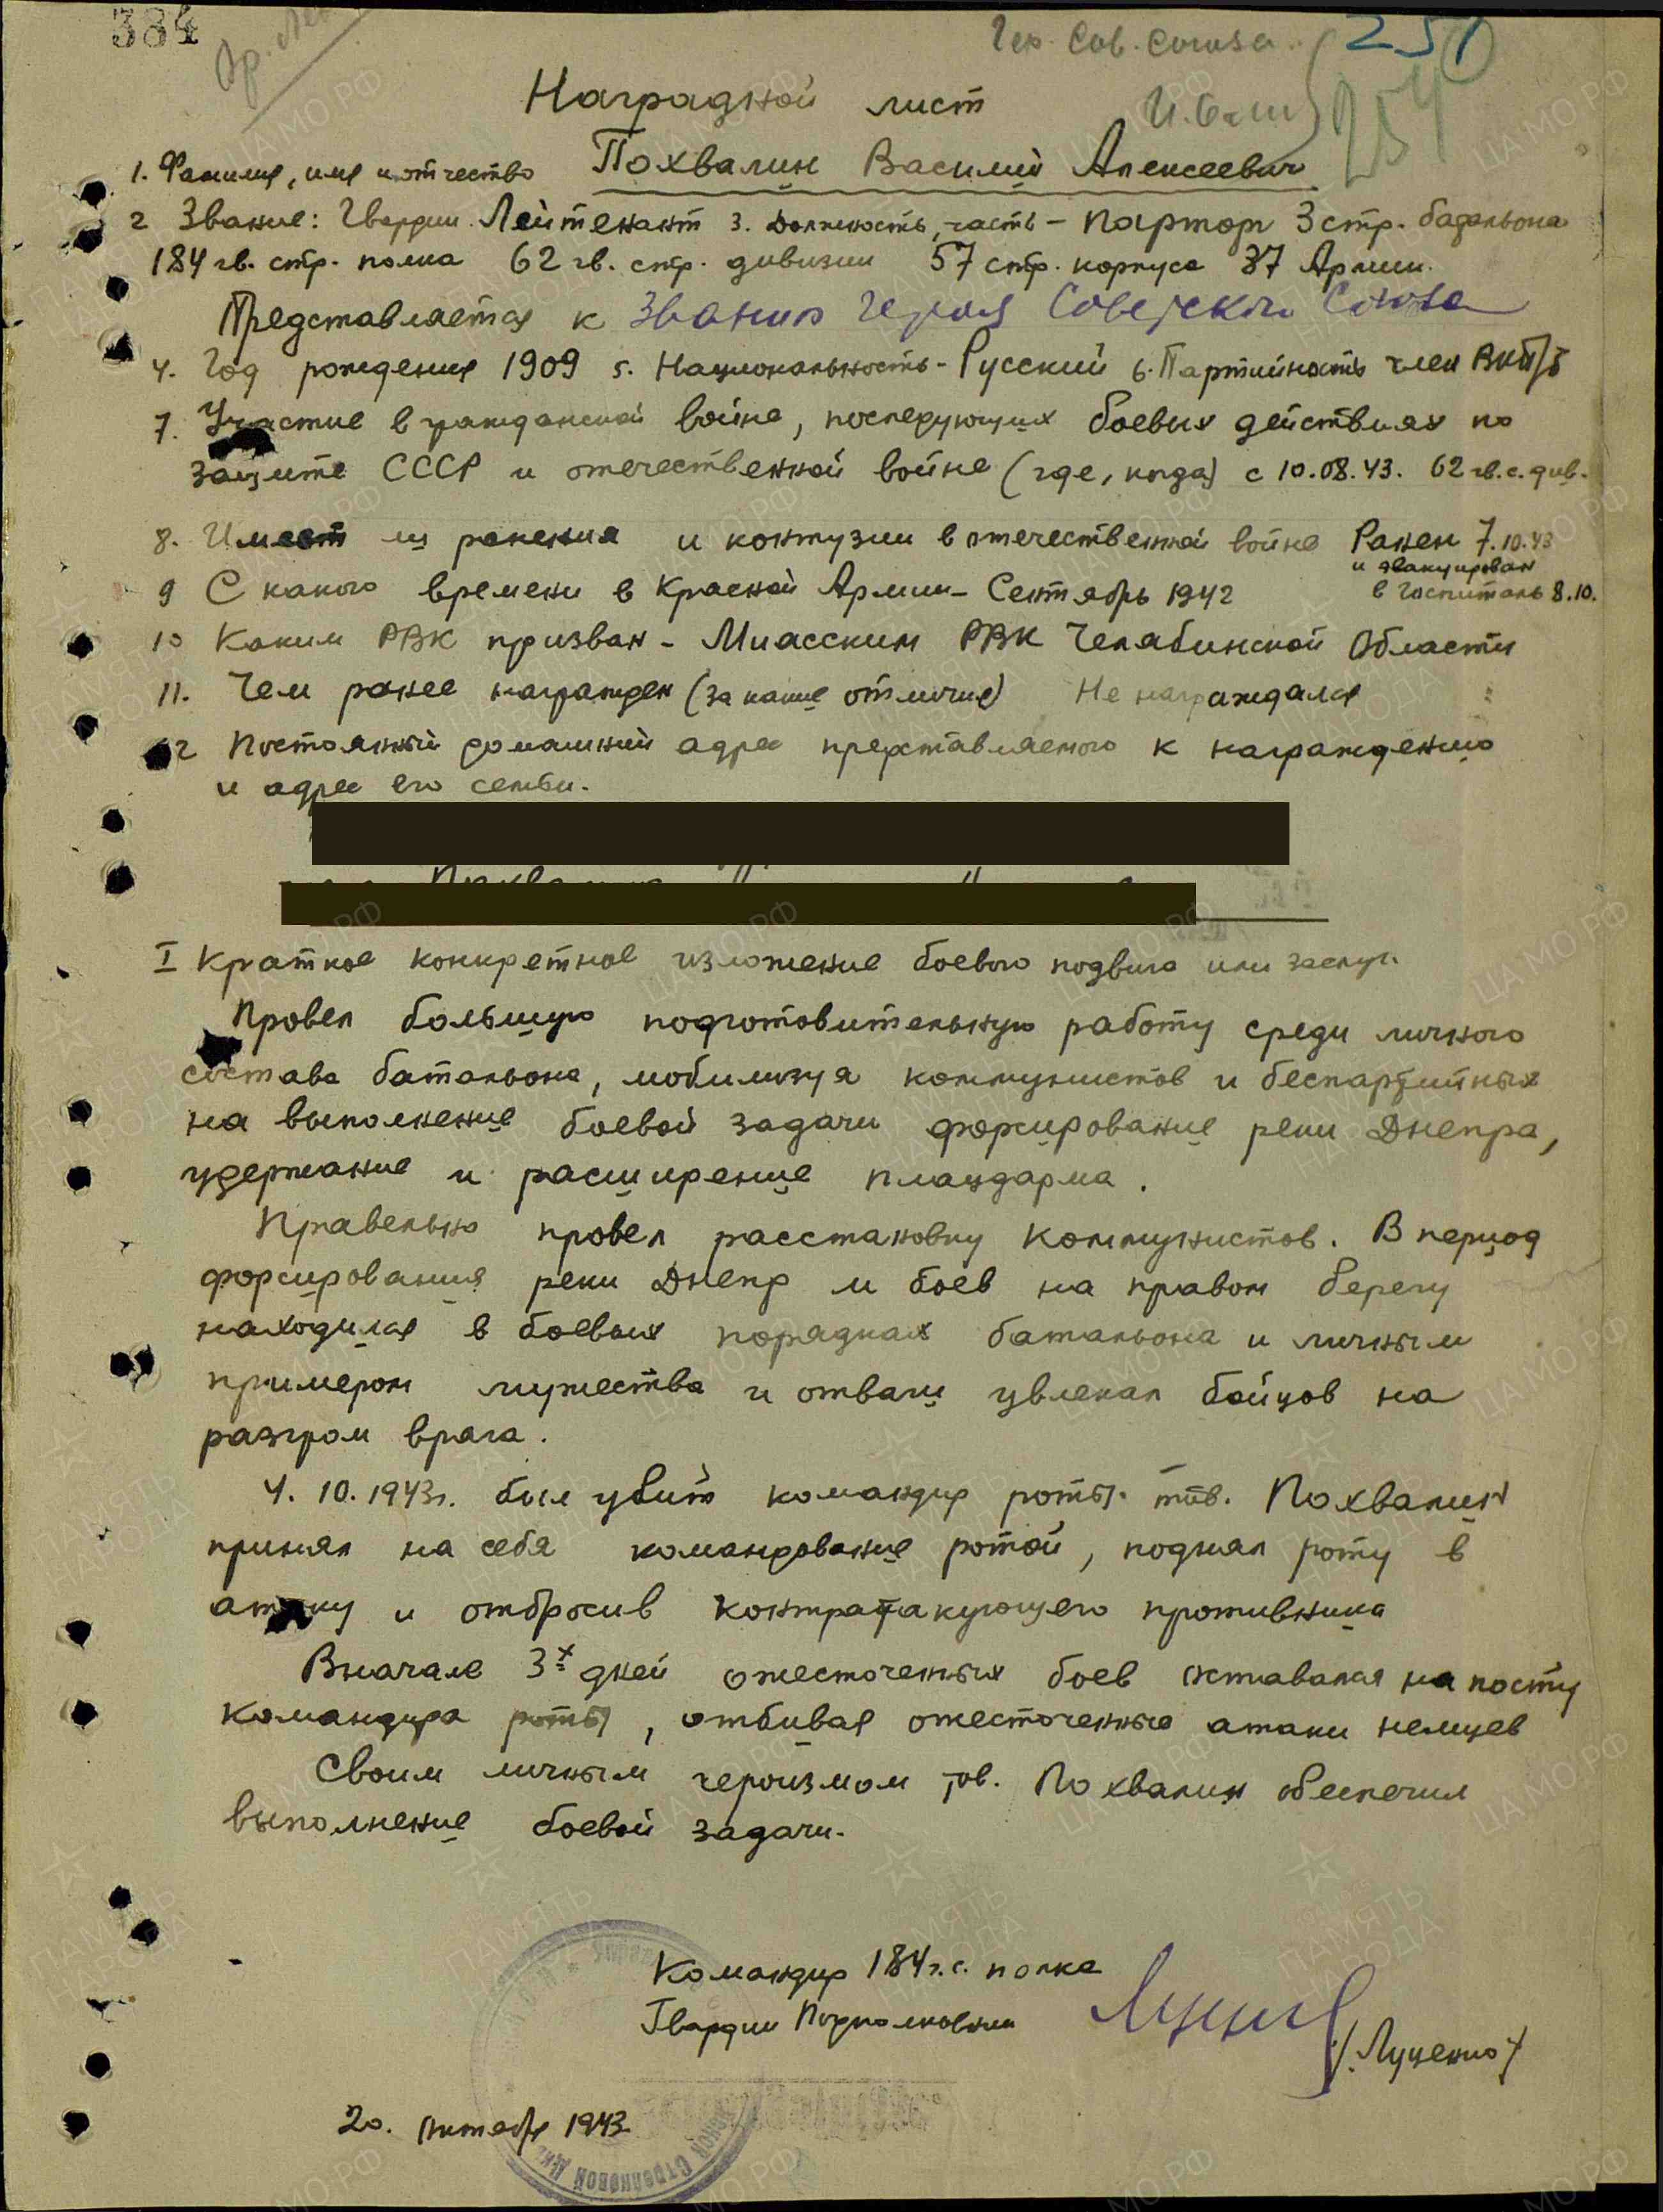 384
Гер. Сов. Союза
251
254
Наградной лист
1. Фамилия, имя и отчество Похвалин Василий Алексеевич
2 Звание: Гвардии Лейтенант 3. Должность, часть - парторг 3 стр. батальона
184 гв. стр. полка 62 гв. стр. дивизии 57 стр. корпуса 37 Армии.
Представляется к званию Героя Советского Союза
4. Год рождения 1909 5. Национальность - Русский 6. Партийность член ВКП/б
7. Участие в гражданской войне, последующих боевых действиях по
защите СССР и отечественной войне (где, когда) с 10.08.43. 62 гв. с. див.
8. Имеет ли ранения и контузии в отечественной войне Ранен 7.10.43
и эвакуирован
в госпиталь 8.10.
9 С какого времени в Красной Армии - Сентябрь 1942
10 Каким РВК призван - Миасским РВК Челябинской Области
11. Чем ранее награжден (за какие отличия) Не награждался
12 Постоянный домашний адрес представляемого к награждению
и адрес его семьи.
I Краткое конкретное изложение боевого подвига или заслуг.
Провел большую подготовительную работу среди личного
состава батальона, мобилизуя коммунистов и беспартийных
на выполнение боевой задачи форсирование реки Днепра,
удержание и расширение плацдарма.
Правельно провел расстановку коммунистов. В период
форсирования реки Днепр и боев на правом берегу
находился в боевых порядках батальона и личным
примером мужества и отваги увлекал бойцов на
разгром врага.
4. 10. 1943г. был убит командир роты. тов. Похвалин
принял на себя командование ротой, поднял роту в
атаку и отбросив контратакующего противника
Вначале 3х дней ожесточенных боев оставался на посту
командира роты, отбивая ожесточенные атаки немцев
Своим личным героизмом тов. Похвалин обеспечил
выполнение боевой задачи.
Командир 184 г.с. полка
Гвардии Подполковник
/Луценко/
20. Октября 1943